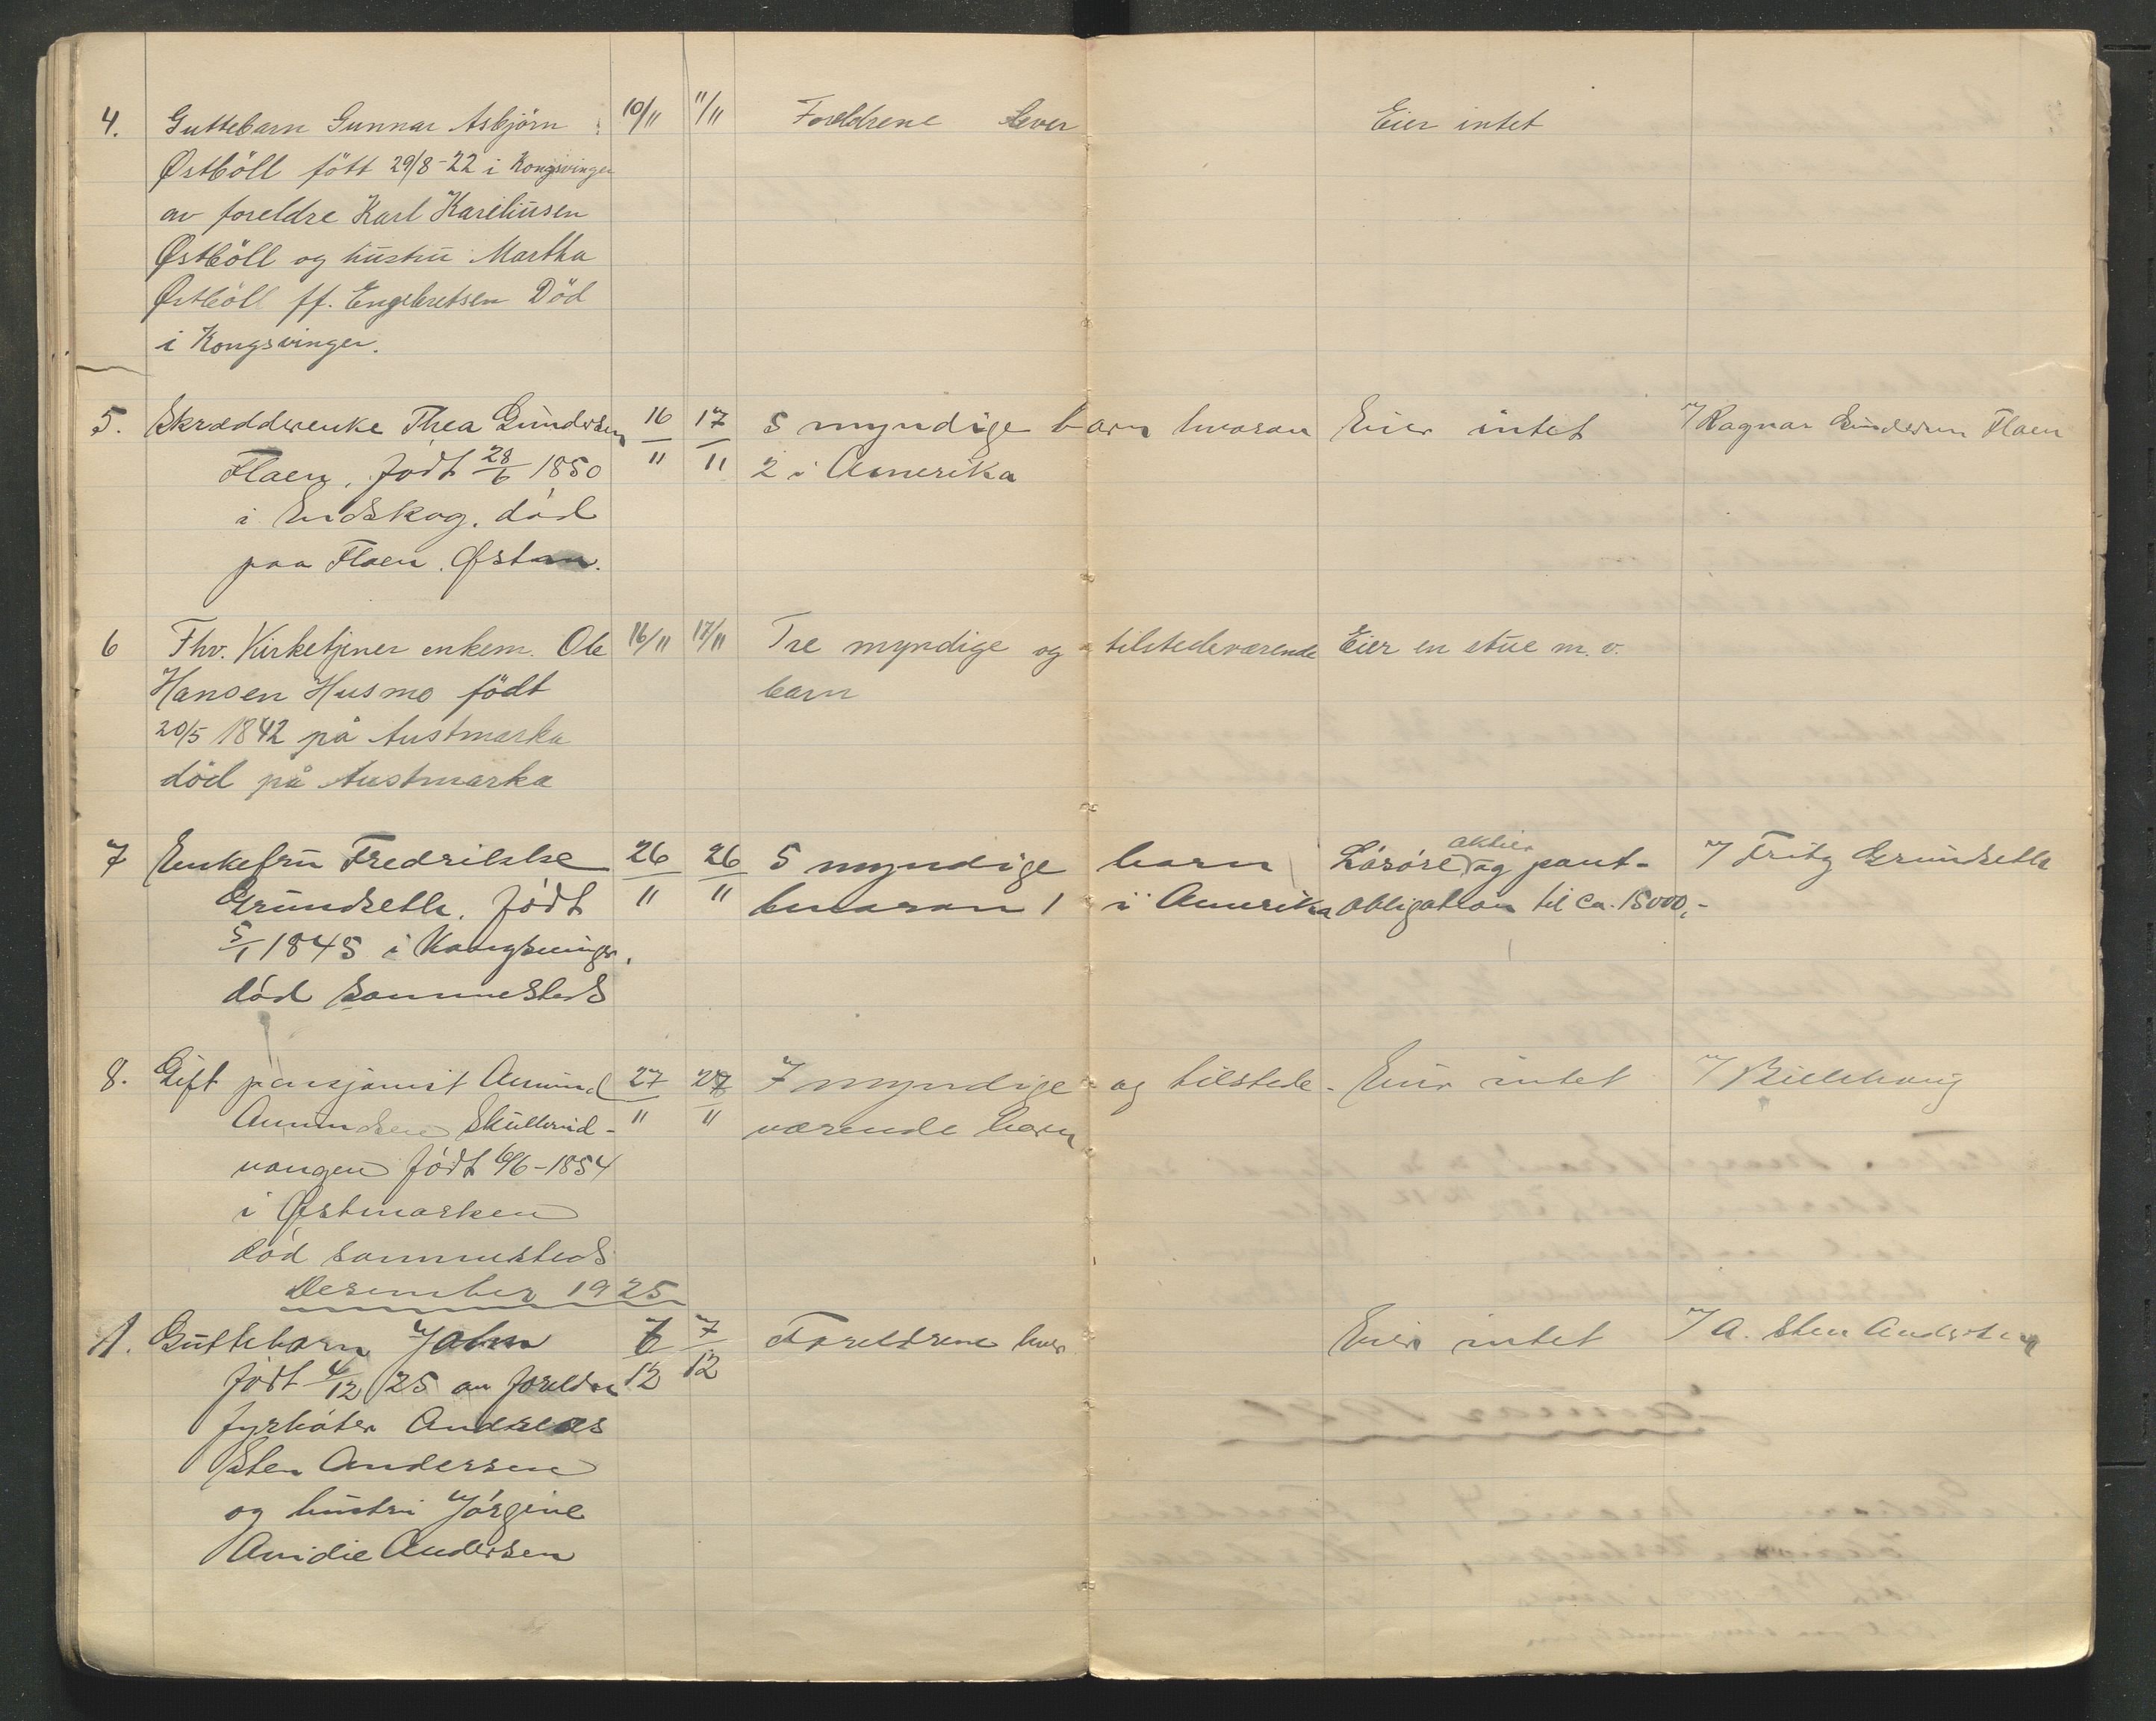 4. Guttebarn Gunnar Asbjörn 10/11 11/11 Foreldrene lever Eier intet
Østböll fött 29/8-22 i Kongsvinger
av foreldre Karl Kareliusen
Østböll og hustru Martha
Østböll ff. Engebretsen Död
i Kongsvinger.
5. Skrædderenke Thea Gundersen 16/11 17/11 5 myndige barn hvoran Eier intet Ragnar Gundersen Flaen
Flaen, født 28/6 1850 2 i Amerika
i Eidskog. død
paa Flaen. Østm.
6 Fhv. Kirketjener enkem. Ole 16/11 17/11 Tre myndige og tilstedeværende Eier en stue m.v.
Hansen Husmo födt barn
20/5 1842 på Austmarka
död på Austmarka
7 Enkefru Fredrikke 26/11 26/11 5 myndige barn Lösöre aktier og pant-
Grundseth. født hvoran 1 i Amerika obligation til ca. 15000,- Fritz Grundseth
5/1 1845 i Kongsvinger.
død sammesteds
8. Gift pensjonist Amund 27/11 27/11 7 myndige og tilstede- Eier intet
Amundsen Skullerud- værende barn
vangen født 6/6-1854
i Østmarken
død sammesteds
Desember 1925
1. Guttebarn John 6/12 7/12 Foreldrene lever Eier intet A. Sten Andersen
født 4/12 25 av foreldre
fyrbøter Andreas
Sten Andersen
og hustru Jørgine
Amdie Andersen